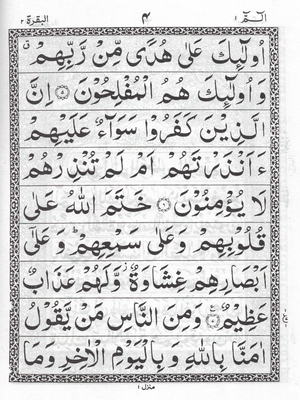 الٓمّٓ ١ ۴ البقرة ٢
اُولٰٓئِكَ عَلٰى هُدًى مِّنْ رَّبِّهِمْ ۗ
وَ اُولٰٓئِكَ هُمُ الْمُفْلِحُوْنَ ۝۵ اِنَّ
الَّذِيْنَ كَفَرُوْا سَوَآءٌ عَلَيْهِمْ
ءَاَنْذَرْتَهُمْ اَمْ لَمْ تُنْذِرْهُمْ
لَا يُؤْمِنُوْنَ ۝۶ خَتَمَ اللّٰهُ عَلٰى
قُلُوْبِهِمْ وَ عَلٰى سَمْعِهِمْ ؕ وَ عَلٰٓى
اَبْصَارِهِمْ غِشَاوَةٌ ؗ وَّ لَهُمْ عَذَابٌ
عَظِيْمٌ ۝۷ وَ مِنَ النَّاسِ مَنْ يَّقُوْلُ
اٰمَنَّا بِاللّٰهِ وَ بِالْيَوْمِ الْاٰخِرِ وَ مَا
منزل ١